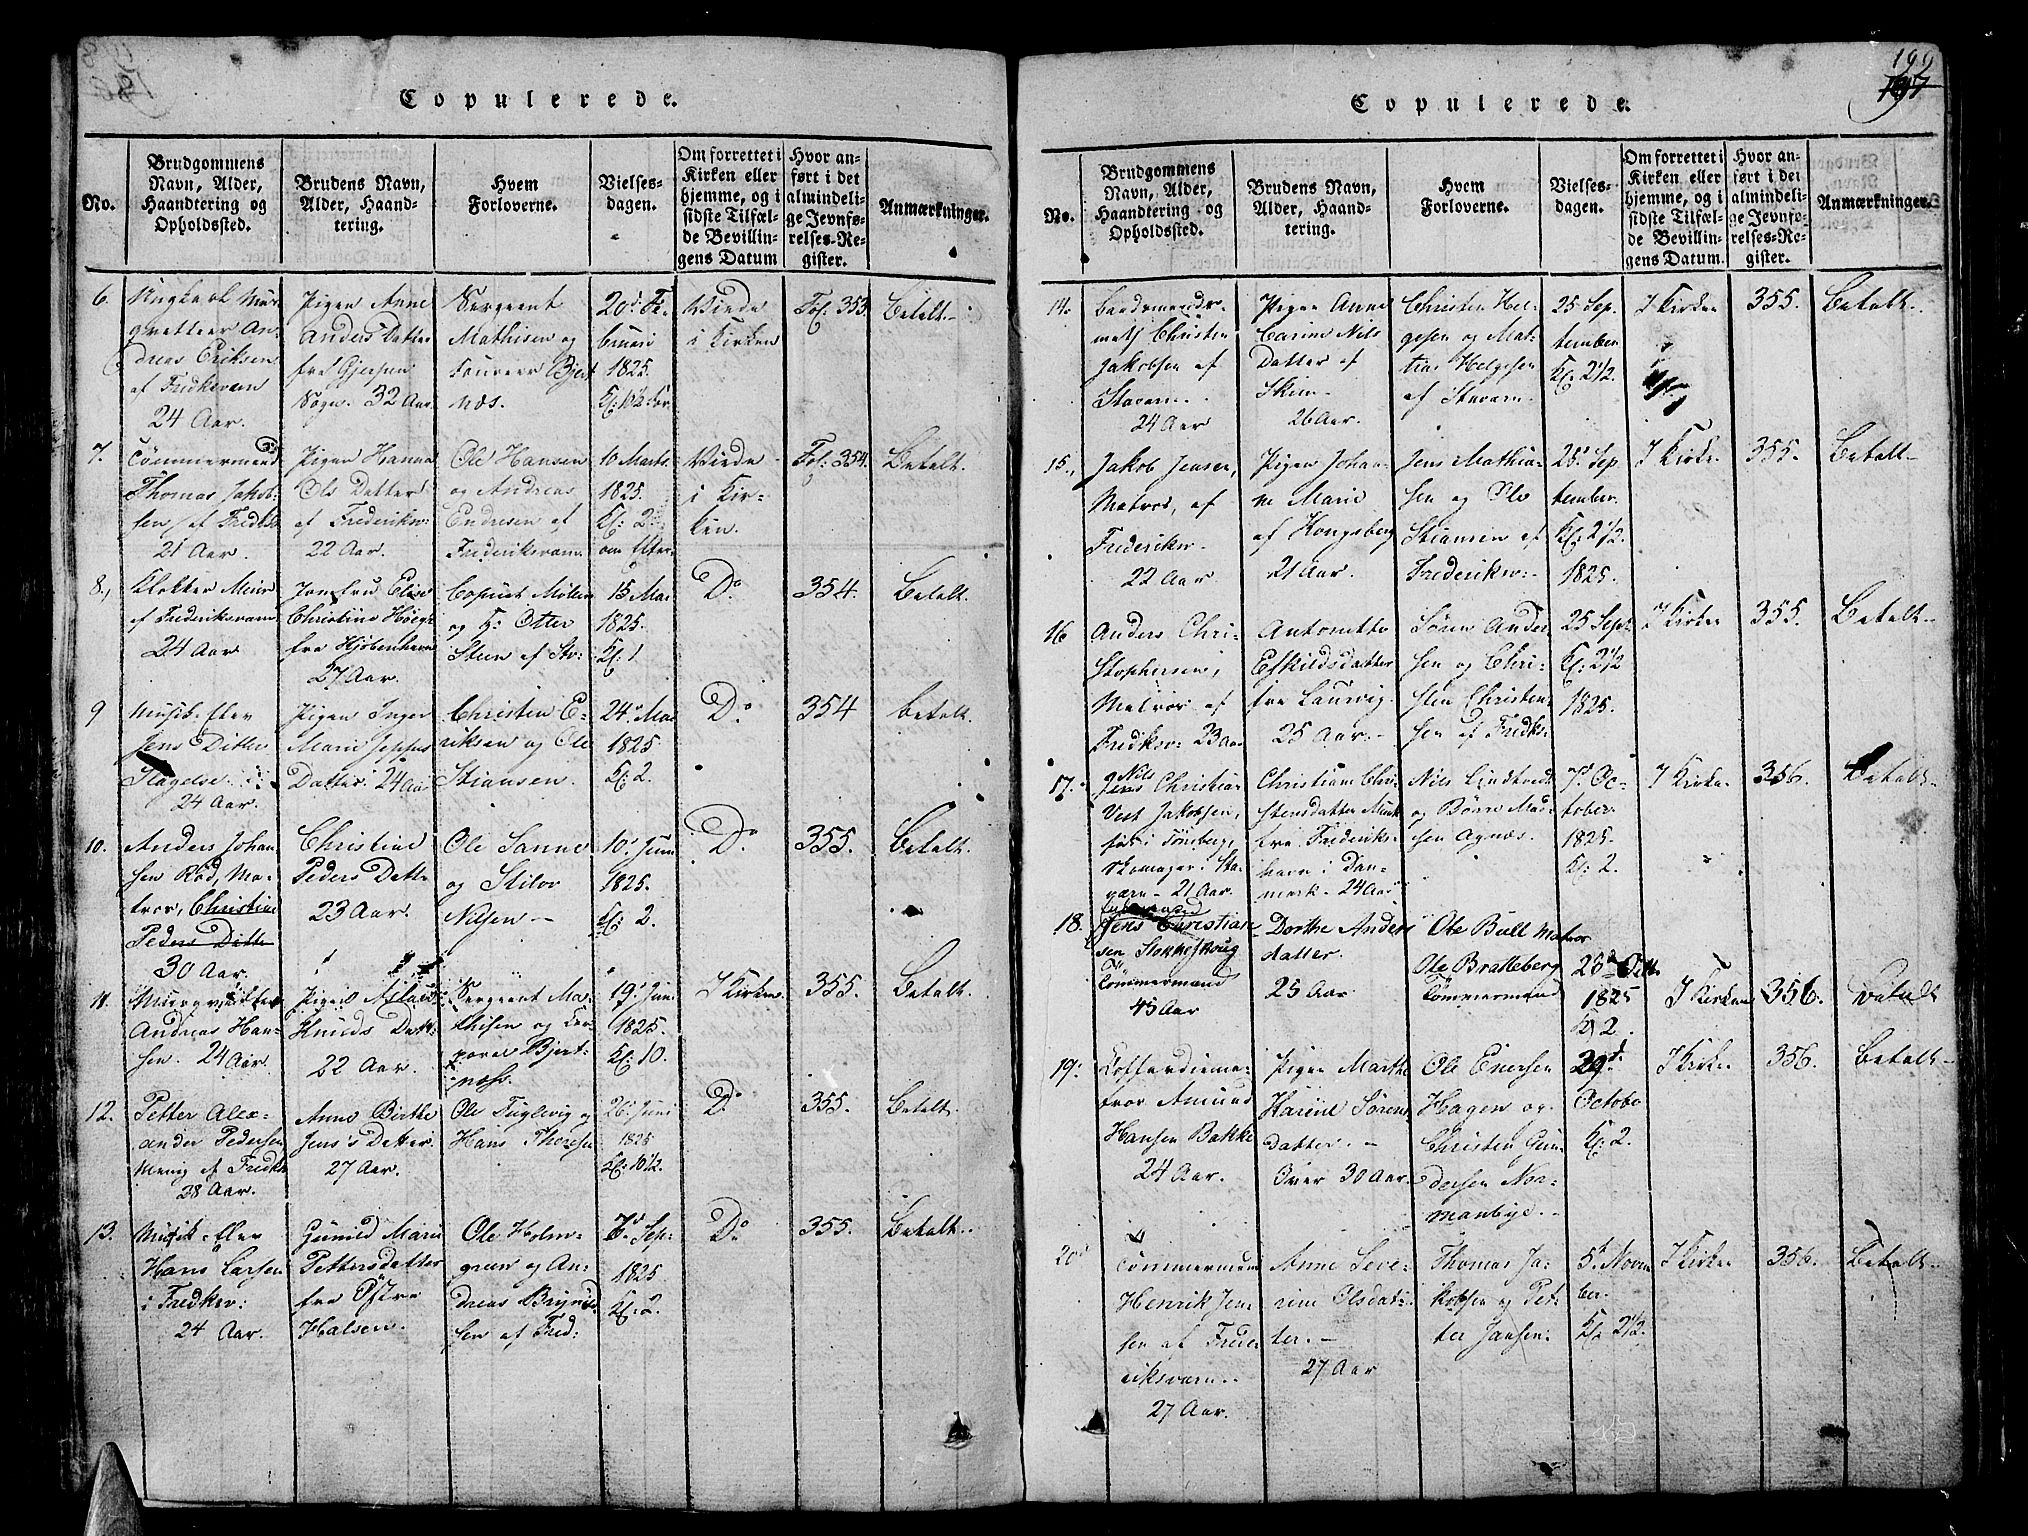 Copulerede.
No.
Brudgommens
Navn, Alder,
Haandtering og
Opholdssted.
Brudens Navn,
Alder, Haand-
tering.
Hvem
Forloverne.
Vielses-
dagen.
Om forrettet i
Kirken eller
hjemme, og i
sidste Tilfæl-
de Bevillin-
gens Datum
Hvor an-
ført i det
almindeli-
ge Jevnfø-
relses-Re-
gister.
Anmærkninger.
6.
Andreas Eriksen
24 Aar.
Pigen Anne
Anders Datter
Sogn. 32 Aar.
Sergeant
Mathisen og
1825.
Viede
i Kirken
Fol. 353.
Betalt.
7.
Tømmermand
Thomas Jakob-
sen, af Fredks
21 Aar.
Pigen Hanna
Ols Datter
af Frederiksv:
22 Aar.
Ole Hansen
og Andreas
Endresen af
Frederiksværn.
10 Marts
1825.
Kl: 2
Viede
i Kir-
ken.
Fol: 354.
Betalt.
8.
af Frederiksværn
24 Aar
Jomfru Elise
Christine Høeg
fra Kjøbenhavn
27 Aar.
og H: Otter
Steen af
15 Ma
1825.
Kl: 1
Do
354.
Betalt.
9
Musik-Elev
Jens Ditlev
Slagelse
24 Aar.
Pigen Inger
Marie Jeppes
Datter. 24 Aar
Christen E-
riksen og Ole
Stiansen.
24. Mai
1825.
Kl: 2.
Do
354
betalt.
10.
Anders Johan-
sen Rød, Ma-
tros, Christine
Peders Datter
30 Aar.
Christine
Peders Datt-
23 Aar.
Ole Sanne
og Stilov
Nilsen
10. Juni
1825.
Kl. 2.
Do
355.
Betalt.
11.
Andreas Han-
sen. 24 Aar.
Knuds Datt:
22 Aar.
Sergeant Ma-
thisen og Cor-
poral Bjert-
næss.
19. Juni
1825.
Kl: 10.
I Kirken.
355.
Betalt
12.
Petter Alex-
ander Pedersen
Menig af Fredks
28 Aar.
Anne Birthe
Jens's Datter.
27 Aar.
Ole Fuglevig og
Hans Thoresen
26. Juni
1825
Kl: 10½.
Do
355.
Betalt
13.
Musik-Elev
Hans Larsen
i Fredksv:
24 Aar.
Gunild Marie
Pettersdatter
fra Østre
Halsen.
Ole Holm-
green og An-
dreas
sen af Fred-
7d Sep-
1825
Kl: 2.
Do
355.
Betalt.
199
197
Copulerede.
No.
Brudgommens
Navn, Alder,
Haandtering og
Opholdssted.
Brudens Navn,
Alder, Haand-
tering.
Hvem
Forloverne.
Vielses-
dagen.
Om forrettet i
Kirken eller
hjemme, og i
sidste Tilfæl-
de Bevillin-
gens Datum.
Hvor an-
ført i det
almindeli-
ge Jevnfø-
relses-Re-
gister.
Anmærkninger.
14.
Christen
Jakobsen af
Stavern.
24 Aar
Pigen Anne
Carine Nils
Datter af
Skien
26 Aar.
Christen Hel-
gesen og Mat-
tias Helgesen
af Stavern.
25 Sep-
tember
Kl: 2½.
I Kirken
355.
Betalt.
15.
Jakob Jensen,
Matros, af
Frederiksv.
22 Aar
Pigen Johan-
ne Marie
af Kongsberg
21 Aar.
Jens Mathia-
sen og Ole
Stiansen af
Frederiksv:
25. Sep-
tember.
Kl: 2½.
1825.
I Kirke
355.
Betalt
16
Anders Chri-
stophersen,
Matros af
Fredksv: 33 Aar
Antonette
Eskildsdatter
fra Laurvig
25 Aar.
Søren Ander-
sen og Chri-
sten Christen-
sen af Fredks:
25 Sept
Kl: 2½
1825.
I Kirken
355.
Betalt
17.
Nils
Jens Christian
Vest Jakobsen,
født i Tønsberg,
Skomager, Sta-
værn. 21 Aar.
Christiane Chri-
stensdatter Munk
fra Frederiks-
havn i Dan-
mark. 24 Aar
Nils Lindtvedt
og Børre Mad-
sen Agnæs.
7. Oc-
tober
1825.
Kl: 2.
I Kirke
356.
Betalt
18.
Jens Christian-
sen Stokkeskoug
Tömmermand
45 Aar
Dorthe Anders
datter.
25 Aar
Ole Bull Matros
Ole Bratteberg
Tömmermand
23d Oct
1825
Kl 2.
I Kirken
356.
Betalt
19.
Coffardiema-
tros Amund
Hansen Bakke
24 Aar.
Pigen Marthe
Karine Sørens
datter.
Over 30 Aar.
Ole Enersen
Hagen og
Christen Gun-
dersen Nor-
manbye.
29d
Octobr
Kl: 2.
I Kirke
356.
Betalt
20
Tømmermand
Henrik Jen-
sen af Freder-
iksværn.
27 Aar.
Anne Seve-
rine Olsdat-
ter.
27 Aar
Thomas Ja-
kobsen og Pet-
ter Jansen.
5t Novem-
ber.
Kl: 2½.
I Kirke
356.
Betalt